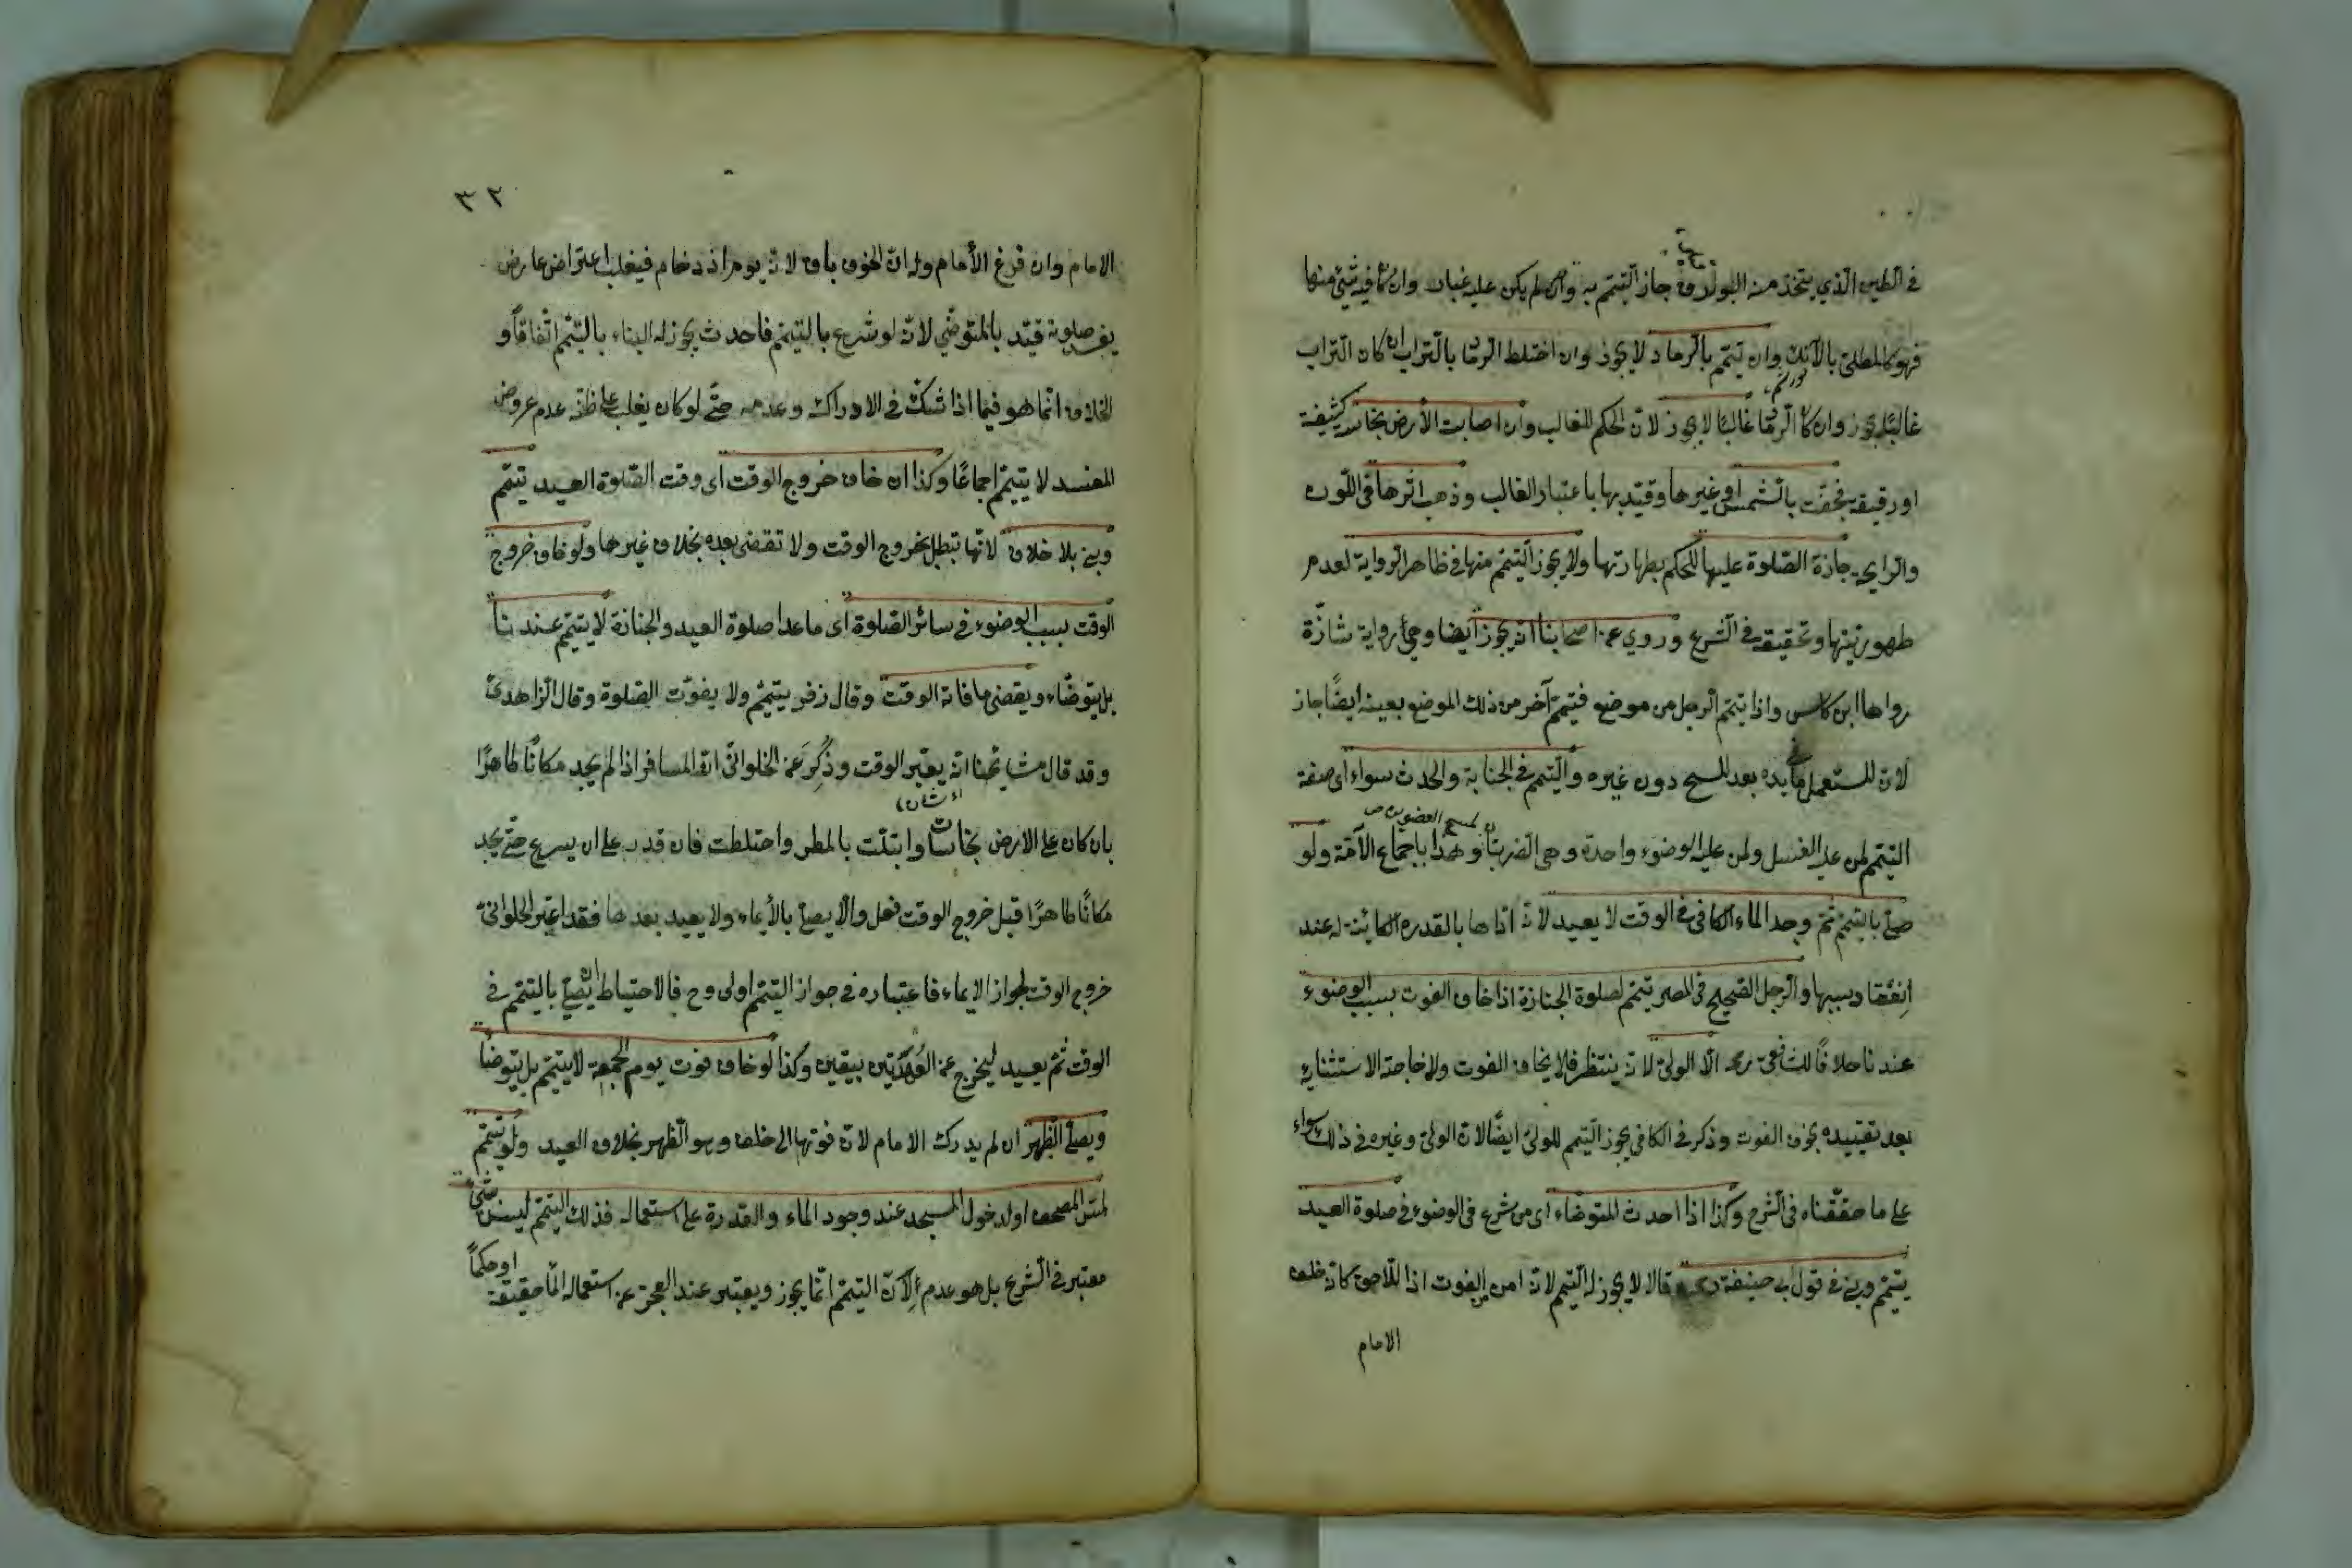 في الطين الذي يتخذ منه البولاق جاز التيمم به وان لم يكن عليه غبار وان كا فيه شئ منها
فهو كالمطلى بالآنك وان تيمم بالرماد لا يجوز وان اختلط الرما بالتراب ان كان التراب
غالبا يجوز وان كا الرما غالبا لا يجوز لان الحكم للغالب وان اصابت الأرض نجاسة كثيفة
او رقيقة فجفت بالشمس او غيرها وقيد بها باعتبار الغالب وذهب اثرها في اللون
والرايحة جازة الصلوة عليها للحكم بطهارتها ولا يجوز التيمم منها في ظاهر الرواية لعدم
طهوريتها وتحقيقه في الشرع وروي عن اصحابنا انه يجوز ايضا وهي رواية شاذة
رواها ابن كاس واذا تيمم الرجل من موضع فتيمم آخر من ذلك الموضع بعينه ايضا جاز
لان المستعمل ما في يده بعد المسح دون غيره والتيمم في الجنابة والحدث سواء اى صفة
لمسح العضوين ص
التيمم لمن عليه الغسل ولمن عليه الوضوء واحدة وهى الضربتان وهذا باجماع الأمة ولو
صلى بالتيمم ثم وجد الماء الكافى في الوقت لا يعيد لانه اداها بالقدره الكاينة له عند
انعقاد سببها والرجل الصحيح في المصر تيمم لصلوة الجنازة اذا خاف الفوت بسبب الوضوء
عندنا خلافا للشافعى رحمه الا الولي لانه ينتظر فلا يخاف الفوت ولا حاجة الا ستثنايه
بعد تقييده بخوف الفوت وذكر في الكافي يجوز التيمم للولي ايضا لان الولي وغيره في ذلك سواء
على ما حققناه في الشرح وكذا اذا احدث المتوضاء اى من شرع في الوضوء في صلوة العيد
يتيمم ويبنى في قول ابى حنيفة رحمه وقالا لا يجوز له التيمم لانه امن من الفوت اذا للاحق كانه خلف
الامام
٣٢
الامام وان فرغ الأمام وله ان الخوف باق لانه يوم ازدحام فيغلب اعتراض عارض
يفسد صلوته قيد بالمتوضى لانه لو شرع بالتيمم فاحدث يجوز له البناء بالتيمم اتفاقا و
الخلاف انما هو فيما اذا شك في الادراك وعدمه حتى لو كان يغلب على ظنه عدم عروض
المفسد لا يتيمم اجماعا وكذا ان خاف خروج الوقت اى وقت الصلوة العيد تيمم
وبنى بلا خلاف لانها تبطل بخروج الوقت ولا تقضى بعده بخلاف غيرها ولو خاف خروج
الوقت بسبب الوضوء في سائر الصلوة اى ما عدا صلوة العيد والجنازة لا يتيمم عندنا
بل يتوضاء ويقضى ما فاته الوقت وقال زفر يتيمم ولا يفوت الصلوة وقال الزاهدى
وقد قال مشايخنا انه يعتبر الوقت وذكر عن الحلوانى ان المسافر اذا لم يجد مكانا طاهرا
بان كان على الارض نجاسات وابتلت بالمطر واختلطت فان قدر على ان يسرع حتى يجد
مكانا طاهرا قبل خروج الوقت فعل والا يصلى بالأيماء ولا يعيد بعدها فقد اعتبر الحلوانى
خروج الوقت لجواز الايماء فاعتباره في جواز التيمم اولى وح فالاحتياط ان يصلى بالتيمم في
الوقت ثم يعيد ليخرج عن العهدتين بيقين وكذا لو خاف فوت يوم الجمعة لا يتيمم بل يتوضا
ويصلى الظهر ان لم يدرك الامام لان فوتها الى خلف وهو الظهر بخلاف العيد ولو تيمم
لمس المصحف او لدخول المسجد عند وجود الماء والقدرة على استعماله فذلك التيمم ليس بشئ
معتبر في الشرع بل هو عدم لان التيمم انما يجوز ويعتبر عند العجز عن استعماله الما حقيقة
او حكما